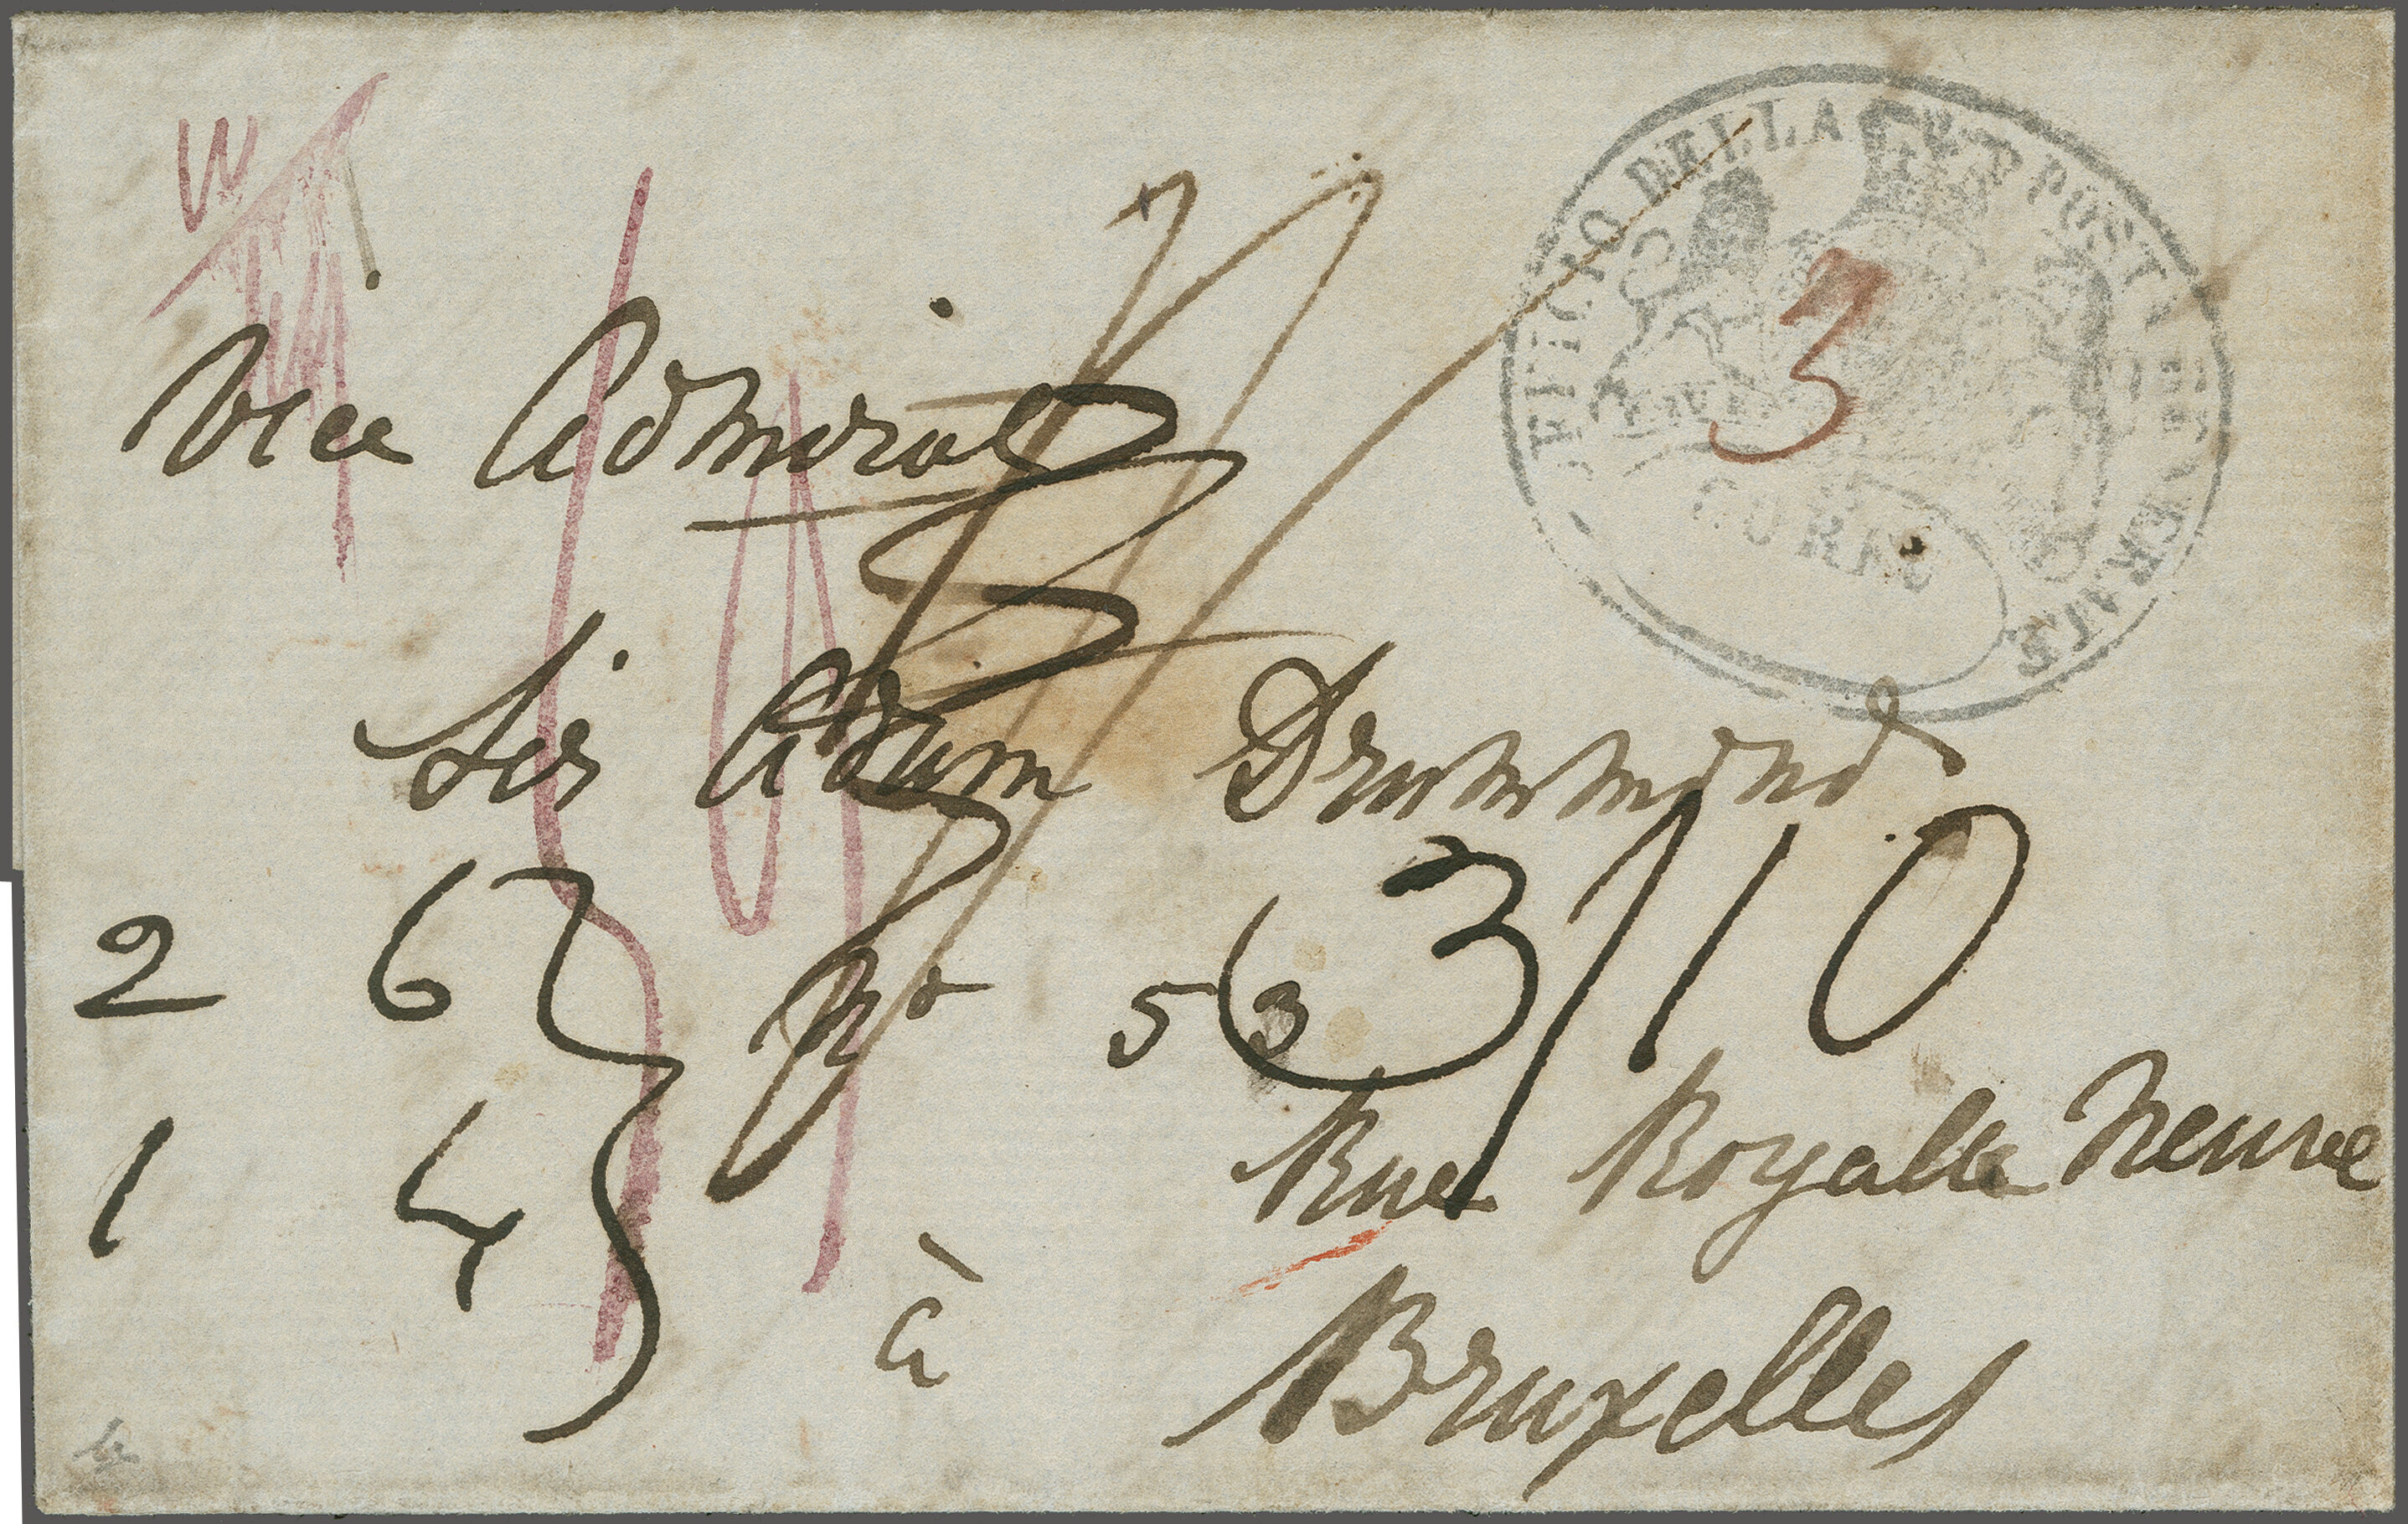 UFFICIO DELLA POSTA GENERALE
CORFU
3
Vice Admiral
Sir Adam Drummond
3/10
2 6
1 4
No 53
Rue Royalle Neuve
à
Bruxelles